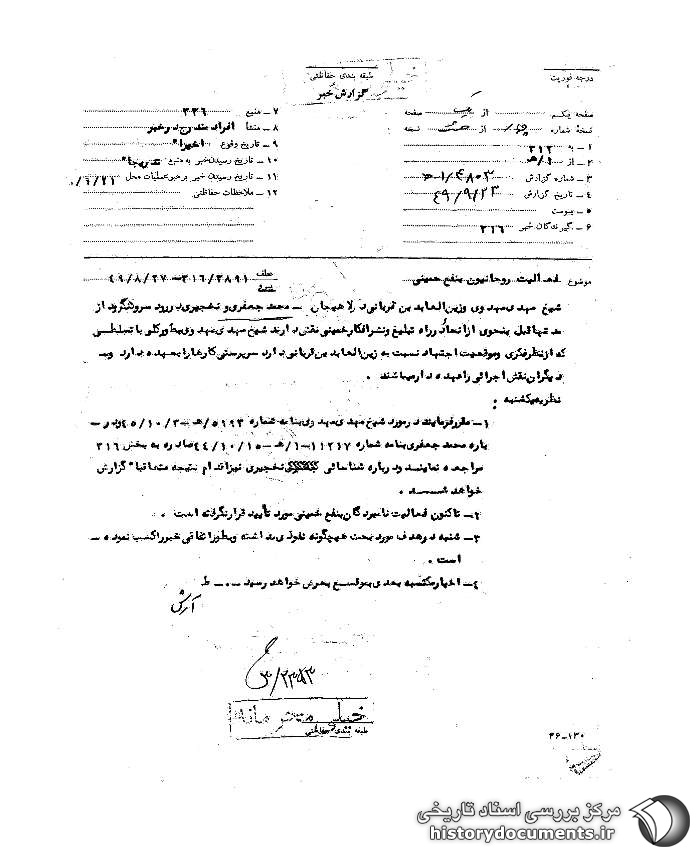 درجه فوریت
طبقه بندی حفاظتی
گزارش خبر
صفحه یکم از یک صفحه
نسخه شماره از نسخه
۱ – به ۳۱۲
۲ – از ۱/ ه‍
۳ – شماره گزارش
۴ – تاریخ گزارش ۴۹/۹/۲۳
۵ – پیوست
۶ – گیرندگان خبر ۳۱۶
۷ – منبع ۳۳۶
۸ – منشأ افراد مندرج در خبر
۹ – تاریخ وقوع اخیرا"
۱۰ – تاریخ رسیدن خبر به منبع
۱۱ – تاریخ رسیدن خبر به رهبر عملیات محل
۱۲ – ملاحظات حفاظتی
موضوع فعالیت روحانیون بنفع خمینی
عطف ۳۱۶/۲۸۹۱ – ۴۹/۸/۲۷
شیخ مهدی مهدوی و زین العابدین قربانی در لاهیجان – محمد جعفری و تخجیری در رودسر و لنگرود از
مدتها قبل بنحوی از انحاء در راه تبلیغ و نشر افکار خمینی نقش دارند شیخ مهدی مهدوی بطور کلی با تسلطی
که از نظر فکری و موقعیت اجتهاد نسبت به زین العابدین قربانی دارد سرپرستی کارها را بعهده دارد و
دیگران نقش اجرائی را عهده دار میباشند .
نظریه یکشنبه :
۱ – مقرر فرمایند در مورد شیخ مهدی مهدوی بنامه شماره ۵۱۹۳/ ه‍ – ۴۵/۱۰/۳ و در –
باره محمد جعفری بنامه شماره ۱۱۲۱۷ – ۱/ ه‍ – ۴۴/۱۰/۱۵ صادره به بخش ۳۱۶
مراجعه نمایند و درباره شناسائی تخجیری نیز اقدام نتیجه متعاقبا" گزارش
خواهد شد .
۲ – تاکنون فعالیت نامبردگان بنفع خمینی مورد تأیید قرار نگرفته است .
۳ – شنبه در هدف مورد بحث هیچگونه نفوذی نداشته و بطور اتفاقی خبر را کسب نموده –
است .
۴ – اخبار مکتسبه بعدی بموقع بعرض خواهد رسید – . – ط
آرش
خیلی محرمانه
طبقه بندی حفاظتی
۳۶–۱۳۰
مرکز بررسی اسناد تاریخی
historydocuments.ir